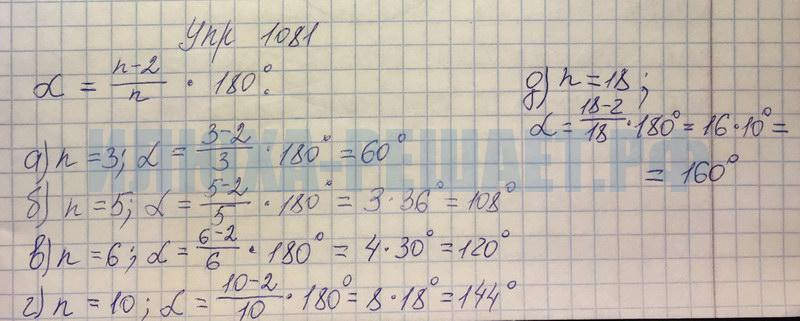 Упр 1081
α = n-2/n · 180°.
а) n = 3; α = 3-2/3 · 180° = 60°
б) n = 5; α = 5-2/5 · 180° = 3·36° = 108°
в) n = 6; α = 6-2/6 · 180° = 4·30° = 120°
г) n = 10; α = 10-2/10 · 180° = 8·18° = 144°
д) n = 18;
α = 18-2/18 · 180° = 16·10° =
= 160°
ИЛЮХА-РЕШАЕТ.РФ